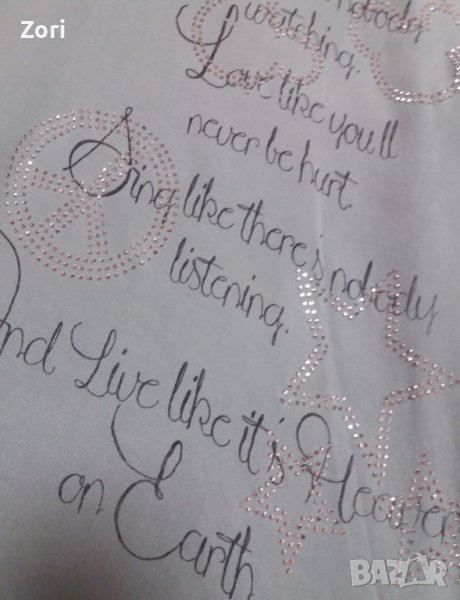 Zori
nobody
watching.
Love like you'll
never be hurt.
Sing like there's nobody
listening.
And Live like it's Heaven
on Earth
BAZAR